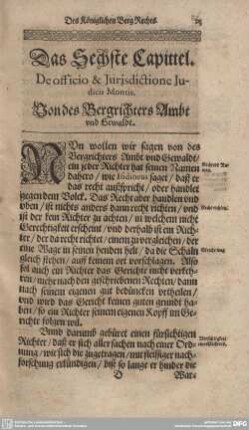 Des Königlichen Berg Rechts.
Das Sechste Capittel.
De officio & Jurisdictione Ju-
dicis Montis.
Von des Bergrichters Ambt
vnd Gewaldt.
NVn wollen wir sagen von des
Bergrichters Ambt vnd Gewald/
ein jeder Richter hat seinen Namen
dahero/ wie Isidorus saget/ daß er
das recht außspricht/ oder handlet
gegen dem Volck. Das Recht aber handlen vnd
vben/ ist nichts anders dann recht richten/ vnd
ist der kein Richter zu achten/ in welchem nicht
Gerechtigkeit erscheint/ vnd derhalb ist ein Rich-
ter/ der da recht richtet/ einem zu vergleichen/ der
eine Wage in seinen henden helt/ da die Schaln
gleich stehen/ auff keinem ort vorschlagen. Al-
so soll auch ein Richter das Gerichte nicht verkeh-
ren/ mehr nach den geschriebenen Rechten/ dann
nach seinem eigenen gut bedüncken vrtheilen/
vnd wird das Gericht keinen guten grundt ha-
ben/ so ein Richter seinem eigenen Kopff im Ge-
richte folgen wil.
Vnnd darumb gebüret einen fürsichtigen
Richter/ daß er sich aller sachen nach einer Ord-
nung/ wie sich die zugetragen/ mit fleissiger nach-
forschung erkündigen/ biß so lange er hinder die
D War-